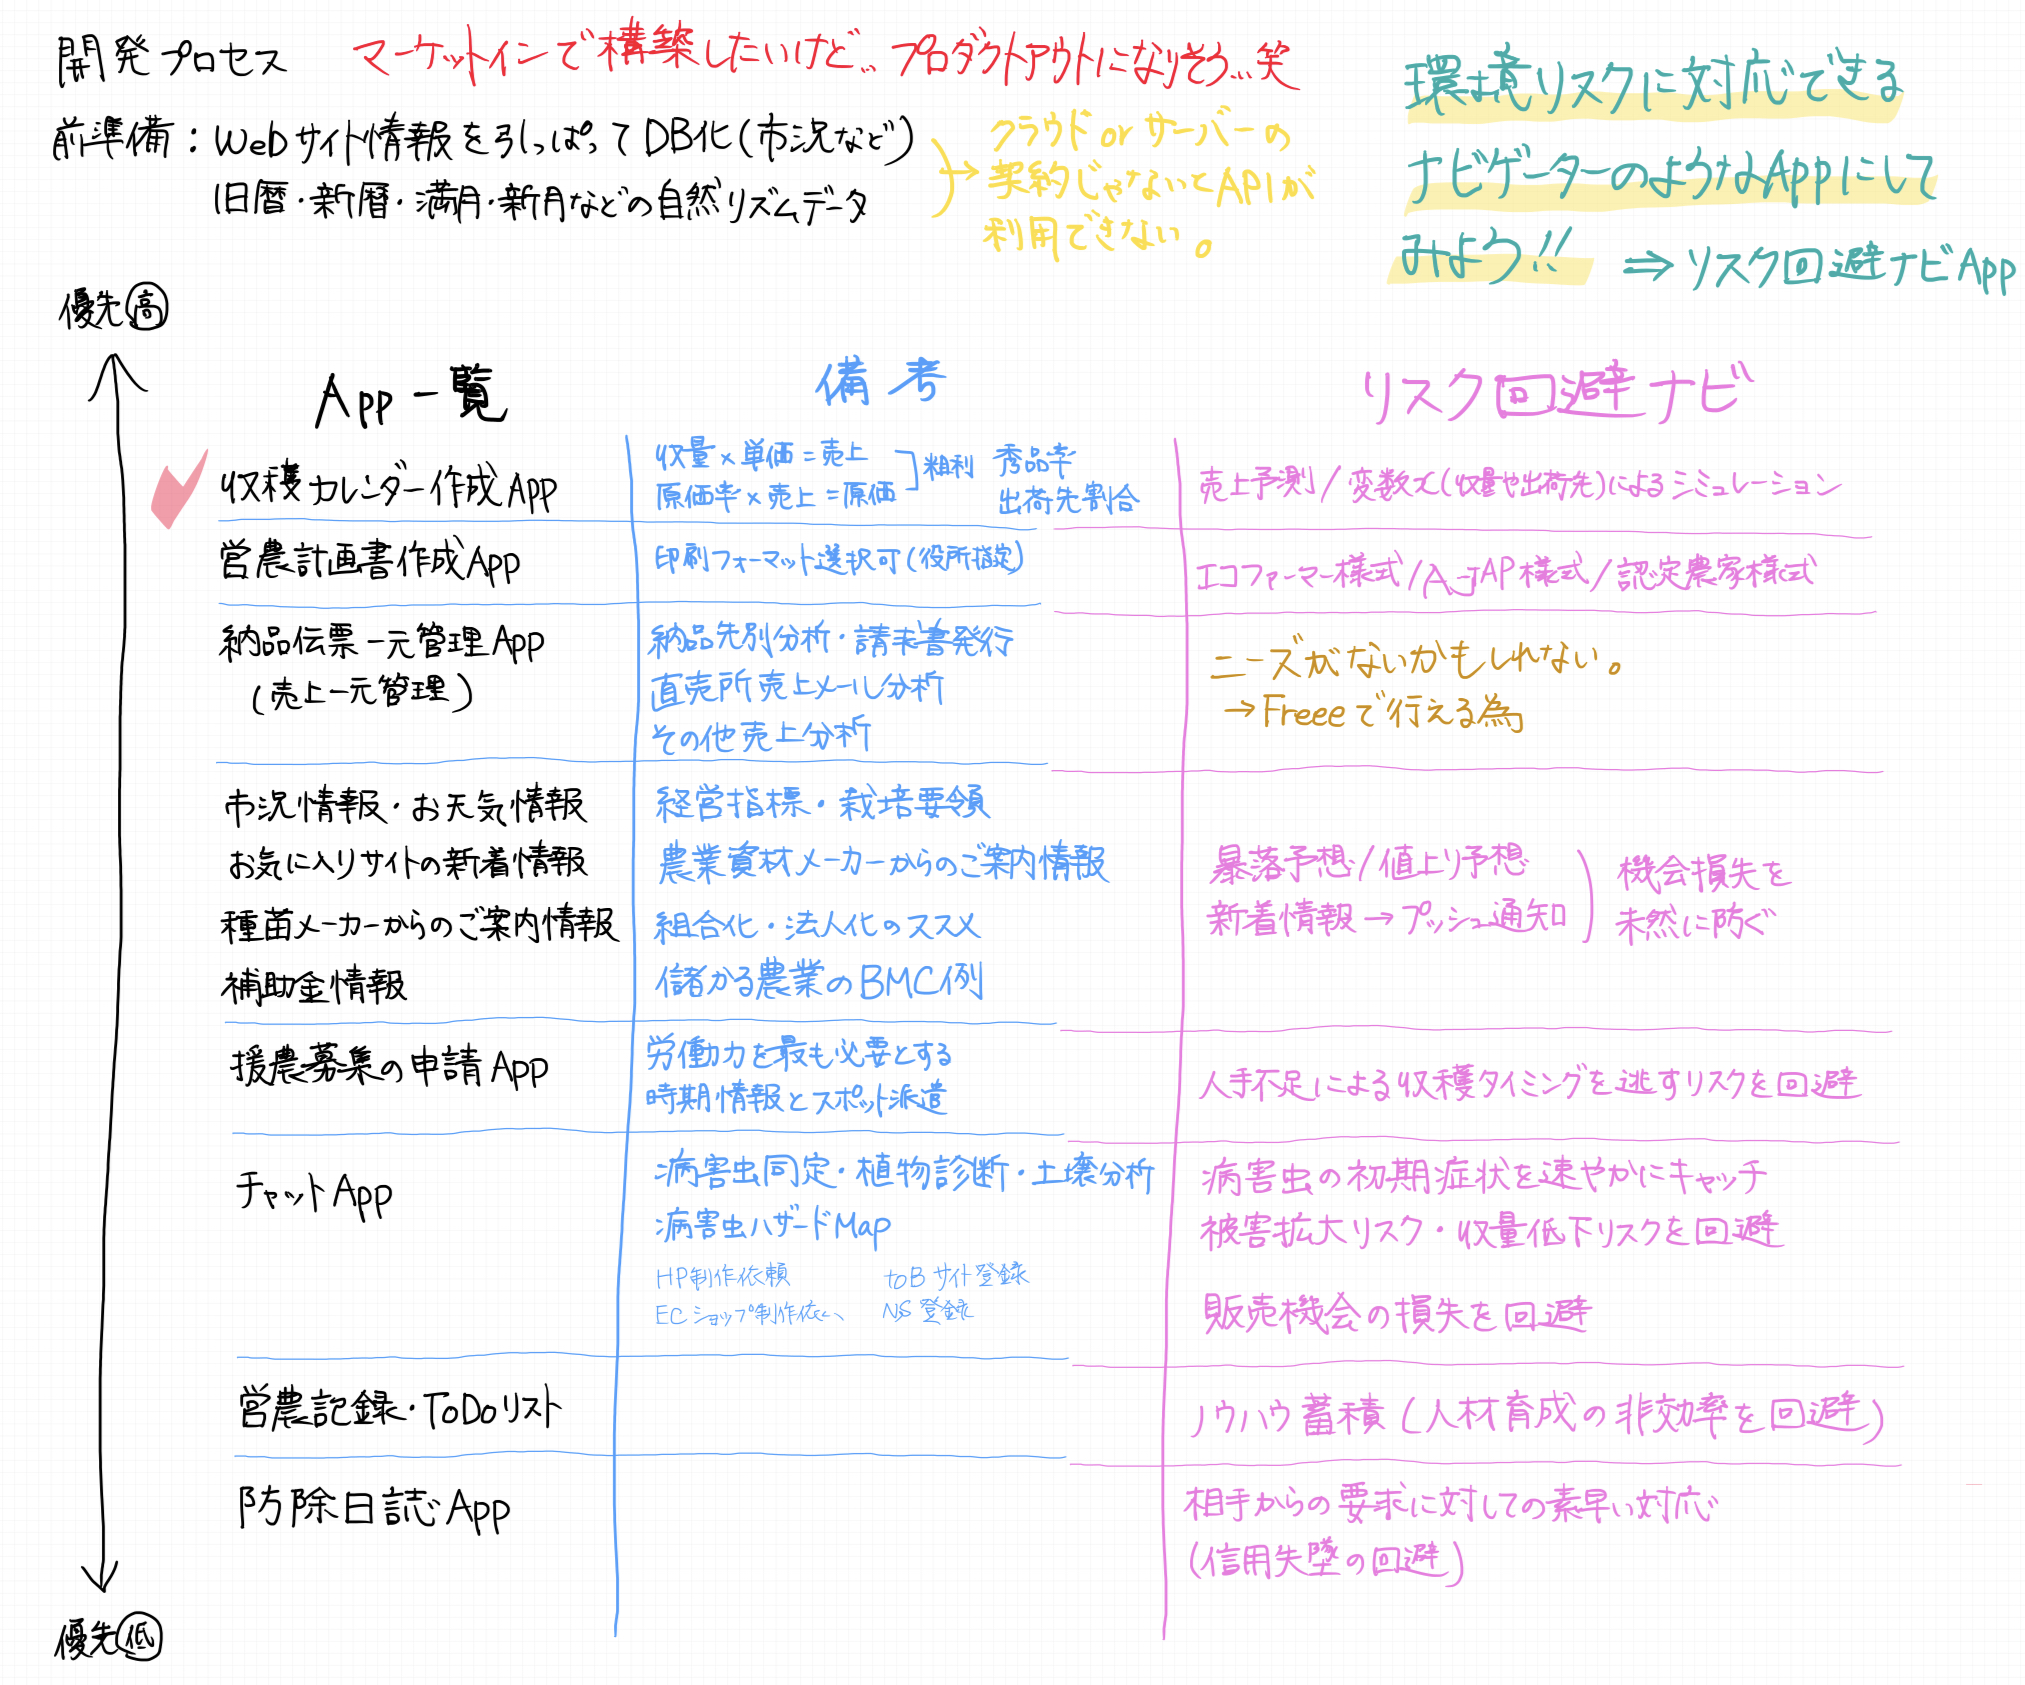 開発プロセス マーケットインで構築したいけど… プロダクトアウトになりそう…笑
前準備：Webサイト情報を引っぱってDB化(市況など)
旧暦・新暦・満月・新月などの自然リズムデータ
→クラウドorサーバーの
契約じゃないとAPIが
利用できない。
環境リスクに対応できる
ナビゲーターのようなAppにして
みよう!!  ⇒リスク回避ナビApp
優先高
App一覧 備考 リスク回避ナビ
収穫カレンダー作成App
収量×単価＝売上
原価率×売上＝原価
粗利
秀品率
出荷先割合
売上予測/変数x(収量や出荷先)によるシミュレーション
営農計画書作成App
印刷フォーマット選択可(役所指定)
エコファーマー様式/様式/認定農家様式
納品伝票一元管理App
(売上一元管理)
納品先別分析・請求書発行
直売所売上メール分析
その他売上分析
ニーズがないかもしれない。
→Freeeで行える為
市況情報・お天気情報
お気に入りサイトの新着情報
種苗メーカーからのご案内情報
補助金情報
経営指標・栽培要領
農業資材メーカーからのご案内情報
組合化・法人化のススメ
儲かる農業のBMC例
暴落予想/値上り予想
新着情報→プッシュ通知
機会損失を
未然に防ぐ
援農募集の申請App
労働力を最も必要とする
時期情報とスポット派遣
人手不足による収穫タイミングを逃すリスクを回避
チャットApp
病害虫同定・植物診断・土壌分析
病害虫ハザードMap
HP制作依頼 toBサイト登録
ECショップ制作依 NS登録
病害虫の初期症状を速やかにキャッチ
被害拡大リスク・収量低下リスクを回避
販売機会の損失を回避
営農記録・ToDoリスト
ノウハウ蓄積(人材育成の非効率を回避)
防除日誌App
相手からの要求に対しての素早い対応
(信用失墜の回避)
優先低